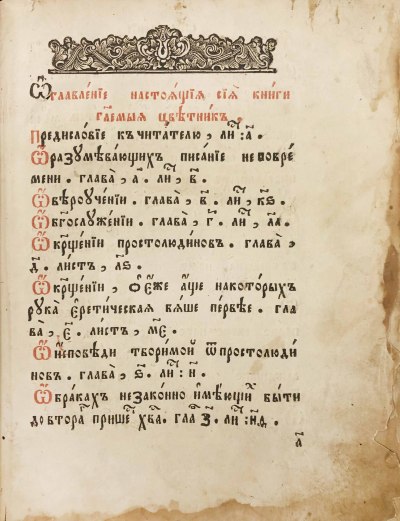 Ѡ҆главле́нїе настоѧ́щїѧ сїѧ̀ кни́ги
гл҃емыѧ цвѣ́тникъ.
Предисло́вїе къчита́телю, ли́: а҃.
Ѿразꙋмѣва́ющихъ писа́нїе не вовре
мени. глава̀, а҃. ли́, в҃.
Ѡ҆вѣроꙋче́нїи. глава̀, в҃. ли́, к҃ѕ.
Ѡ҆бг҃ослꙋже́нїи. глава̀, г҃. ли́, л҃а.
Ѡ҆кр҃ще́нїи простолю́диновъ. глава̀,
д҃. ли́стъ, л҃ѕ.
Ѡ҆кр҃ще́нїи, Ѻ҆е́же а҆́ще нако́торыхъ
рꙋка̀ є҆рети́ческаѧ бѧ́ше пе́рвѣе. гла
ва̀, є҃. ли́стъ, м҃є.
Ѡ҆и҆́сповѣди твори́мой ѿ простолюди
новъ. глава̀, ѕ҃. ли́: н҃.
Ѡ҆бра́кахъ незако́нно и҆мѣ́ющїи бы́ти
до втора́ прише́ хв҃а. гла з҃. ли́: н҃д.
а҃